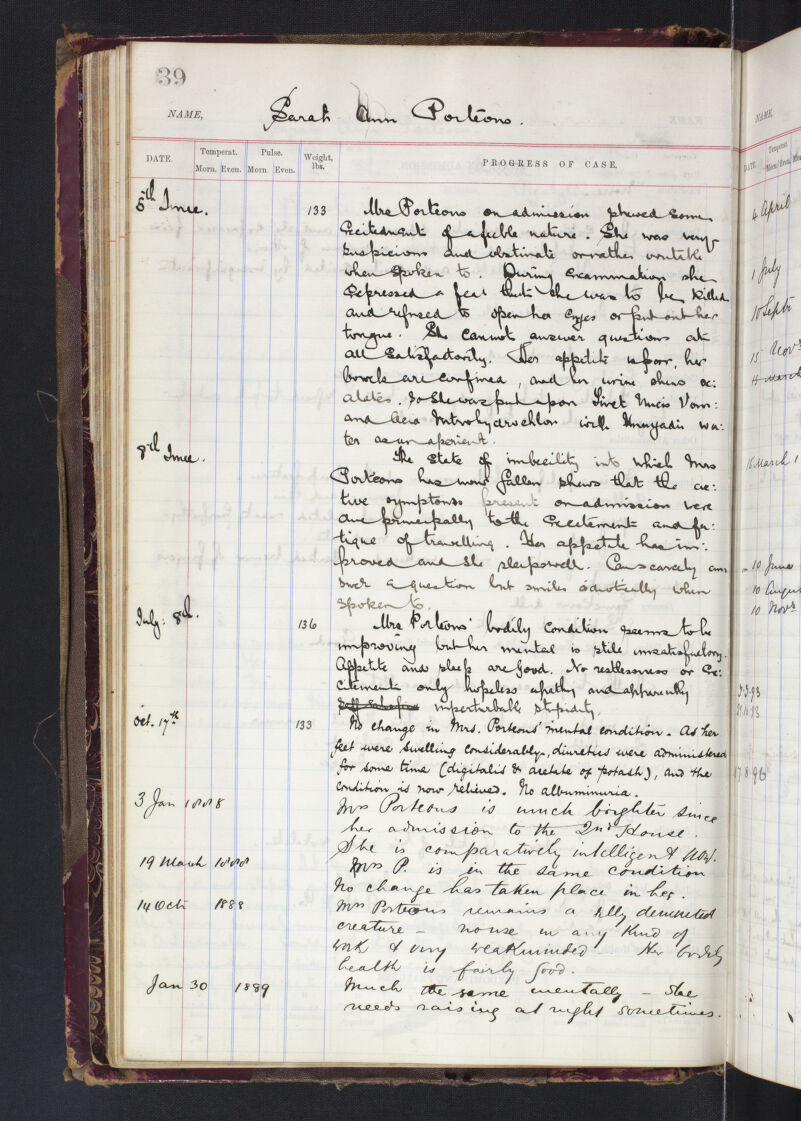 39
NAME, Sarah Ann Porteous.
DATE. Temperat. Pulse. Weight, lbs. PROGRESS OF CASE.
Morn. Even. Morn. Even.
6th June. 133 Mrs Porteous on admission shewed some
excitement of a feeble nature. She was very
suspicious and obstinate or rather
when spoken to. During examination she
expressed a fear that she was to be killed
and refused to open her eyes or put out her
tongue. She cannot answer questions at
all satisfactorily. Her appetite is poor, her
bowels are confined, and her urine shews ox:
alates. So she was put upon Tinct Nucis Vom:
and Acid Nitrohydrochlor with Hunyadis wa:
ter as an aperient.
8th June. The state of imbecility into which Mrs
Porteous has now fallen shews that the ac:
tive symptoms present on admission were
due principally to the excitement and fa:
tigue of travelling. Her appetite has im:
proved and she sleeps well. Can scarcely an:
swer a question but smiles idiotically when
spoken to.
July: 8th. 136 Mrs Porteous' bodily condition seems to be
improving but her mental is still unsatisfactory.
Appetite and sleep are good. No restlessness or ex:
citement only hopeless apathy and apparently
imperturbable stupidity.
Oct. 17th 133 No change in Mrs. Porteous' mental condition. As her
feet were swelling considerably, diuretics were administered
for some time (digitalis & acetate of potash), and the
condition is now relieved. No albuminuria.
3 Jan 1888 Mrs Porteous is much brighter since
her admission to the 2nd House.
She is comparatively intelligent now.
19 March 1888 Mrs P. is in the same condition
No change has taken place in her.
14 Oct 1888 Mrs Porteous remains a silly demented
creature - no use in any kind of
work & very weakminded - Her bodily
health is fairly good.
Jan 30 1889 Much the same mentally - She
needs raising at night sometimes.
NAME.
DATE. Temperat.
Morn. Even.
4 April
1 July
10 Septr
15 Novr
11 March
16 March 1
10 June
10 August
10 Novr
3.3.93
7.8.96